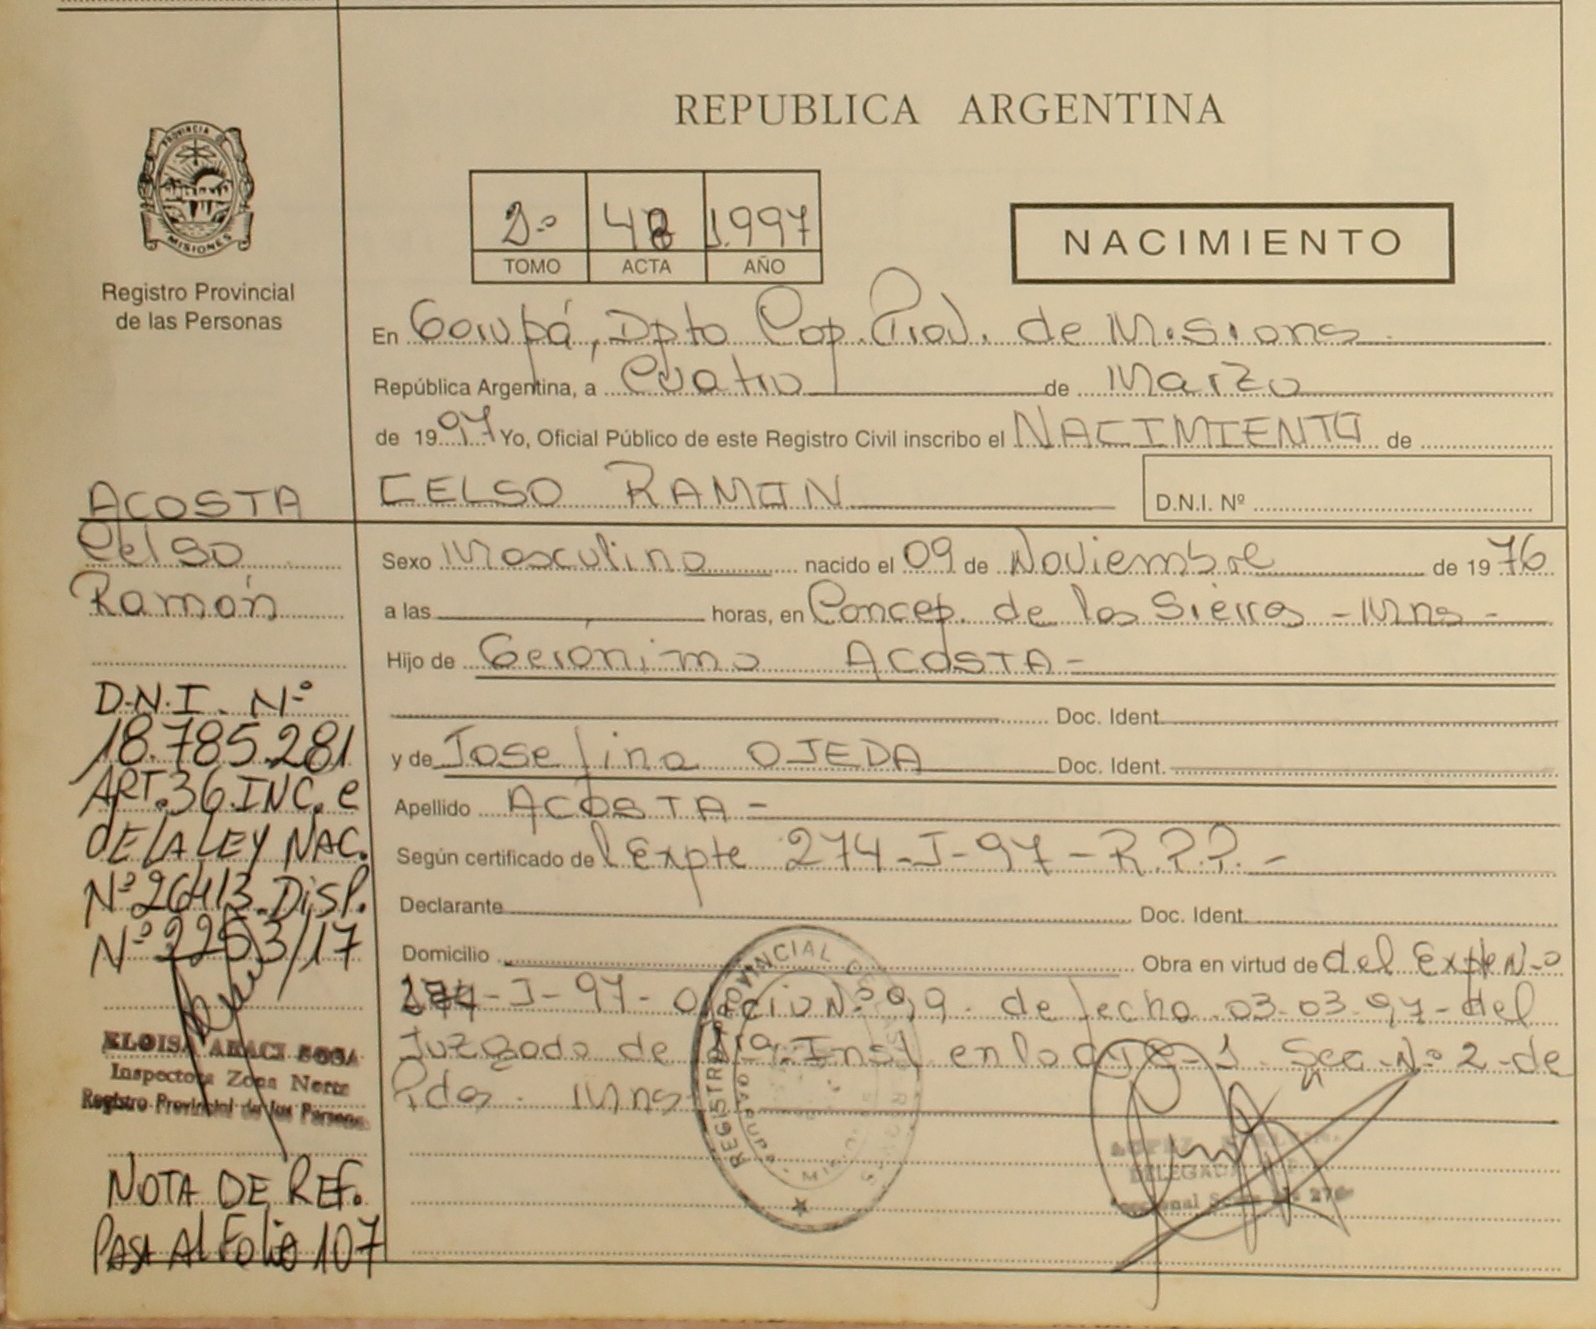 REPUBLICA ARGENTINA
PROVINCIA DE
MISIONES
Registro Provincial
de las Personas
2º 48 1.997
TOMO ACTA AÑO
NACIMIENTO
En Garupá, Dpto Cap. Prov. de Misions
República Argentina, a Cuatro de Marzo
de 1997 Yo, Oficial Público de este Registro Civil inscribo el NACIMIENTO de
CELSO RAMON
D.N.I. Nº
ACOSTA
Celso
Ramón
Sexo Masculino nacido el 09 de Noviembre de 1976
a las horas, en Concep. de la Sierra - Mns -
Hijo de Gerónimo ACOSTA -
Doc. Ident.
y de Josefina OJEDA Doc. Ident.
Apellido ACOSTA -
Según certificado del Expte 274-I-97-R.P.P. -
Declarante Doc. Ident.
Domicilio Obra en virtud de del Expte Nº
274-I-97- Nº 99. de fecha 03-03-97- del
Juzgado de 1ra. Inst en lo 1 Sec. Nº 2 - de
Pdas. Mns
D.N.I. Nº
18.785.281
ART. 36 INC. e
DE LA LEY NAC.
Nº 26413. DISP.
Nº 2253/17
ELOISA ARACI SOSA
Inspectora Zona Norte
Registro Provincial de las Personas
NOTA DE REF.
PASA AL FOLIO 107
REGISTRO PROVINCIAL DE
DELEGADA